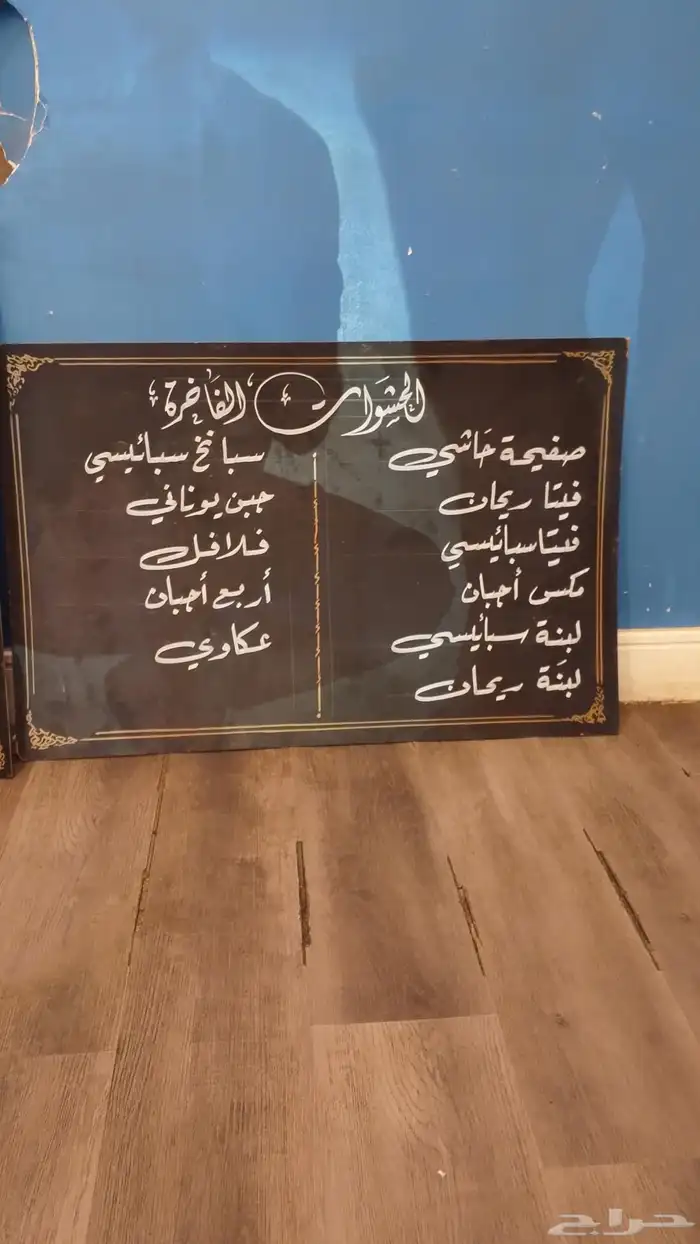 الحشوات الفاخرة
صفيحة حَاشي
فيتا ريحان
فيتا سبائيسي
مكس أجبان
لبنة سبائيسي
لبنَة ريحان
سبانخ سبائيسي
جبن يوناني
فلافل
أربع أجبان
عكاوي
حراج